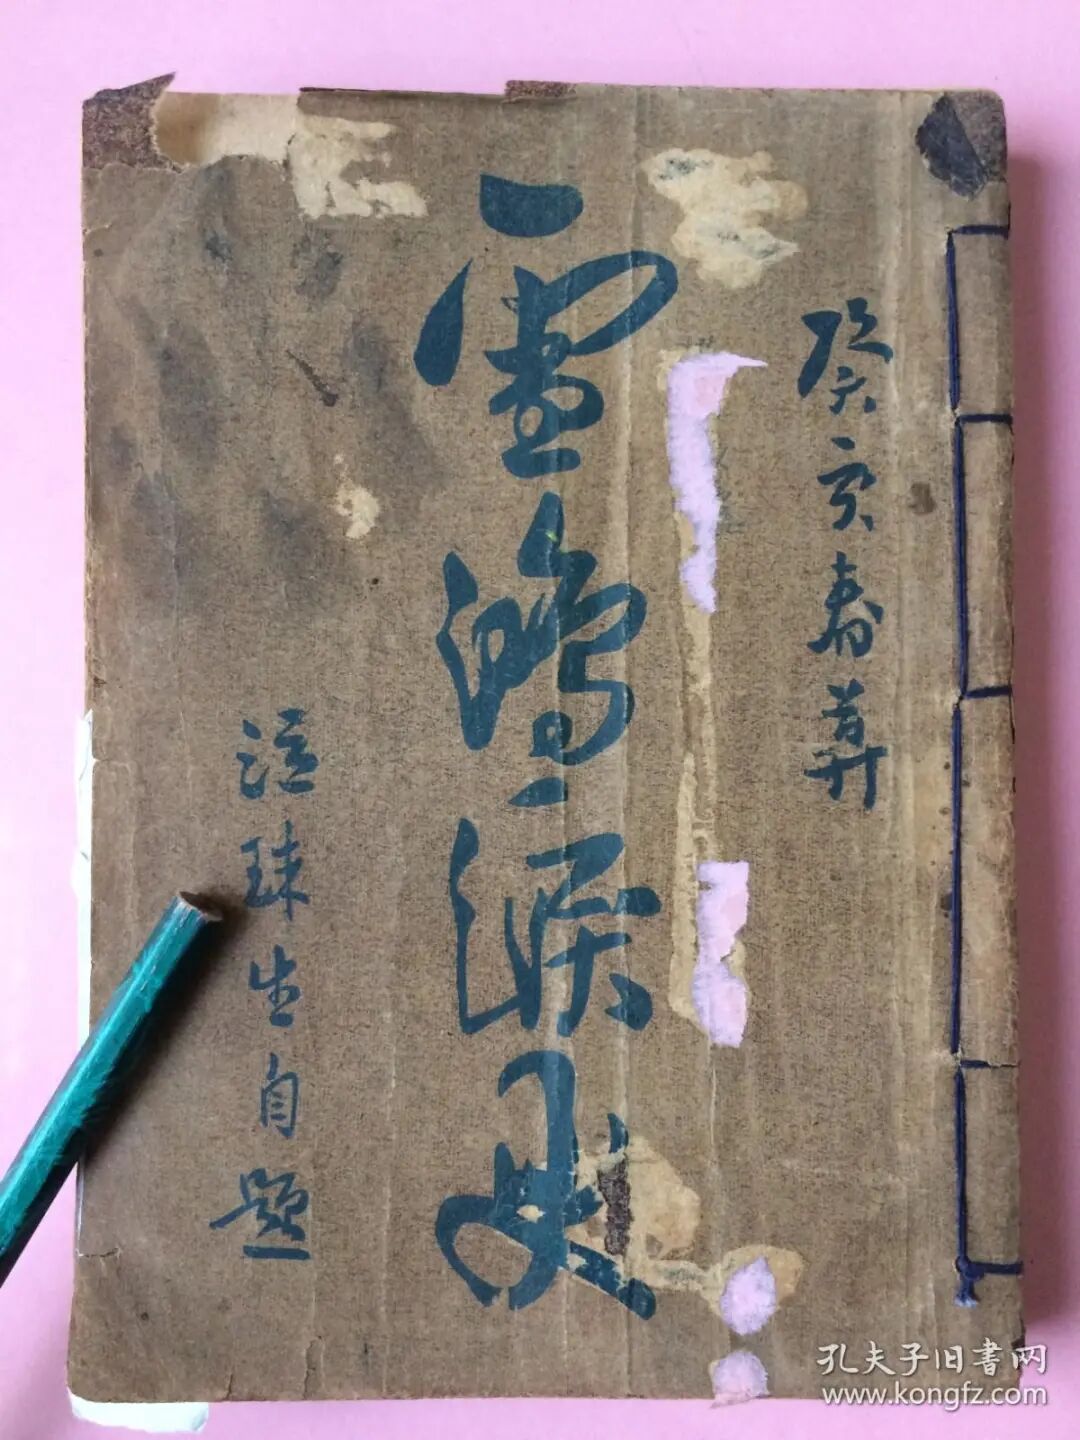 癸亥春莫
雪鴻淚史
泣珠生自題
孔夫子旧書网
www.kongfz.com